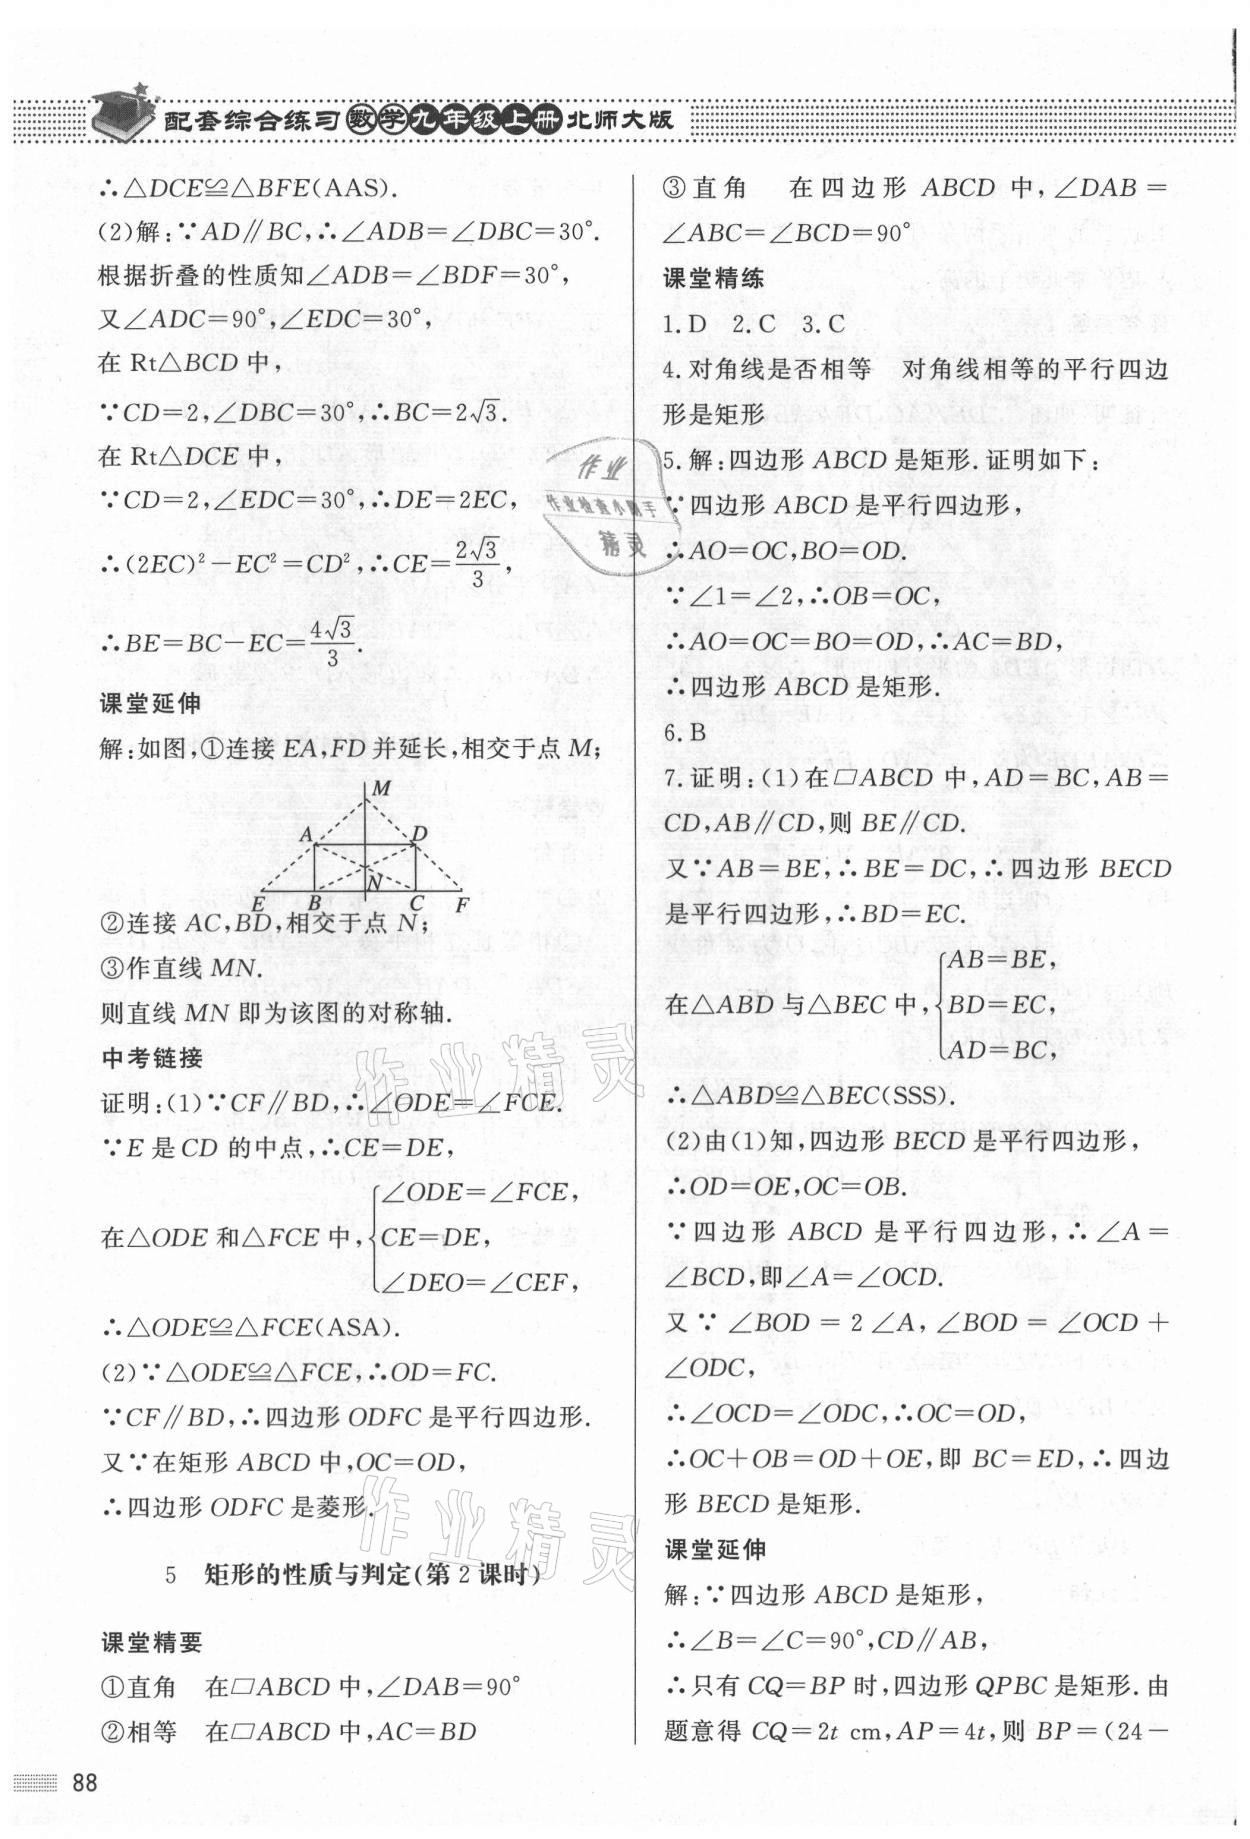 配套综合练习数学九年级上册北师大版
∴△DCE≌△BFE(AAS).
(2)解:∵AD∥BC,∴∠ADB=∠DBC=30°.
根据折叠的性质知∠ADB=∠BDF=30°,
又∠ADC=90°,∠EDC=30°,
在 Rt△BCD 中,
∵CD=2,∠DBC=30°,∴BC=2√3.
在 Rt△DCE 中,
∵CD=2,∠EDC=30°,∴DE=2EC,
∴(2EC)²-EC²=CD²,∴CE=2√3/3,
∴BE=BC-EC=4√3/3.
课堂延伸
解:如图,①连接 EA,FD 并延长,相交于点 M;
M
A D
N
E B C F
②连接 AC,BD,相交于点 N;
③作直线 MN.
则直线 MN 即为该图的对称轴.
中考链接
证明:(1)∵CF∥BD,∴∠ODE=∠FCE.
∵E 是 CD 的中点,∴CE=DE,
在△ODE 和△FCE 中,{∠ODE=∠FCE,
CE=DE,
∠DEO=∠CEF,
∴△ODE≌△FCE(ASA).
(2)∵△ODE≌△FCE,∴OD=FC.
∵CF∥BD,∴四边形 ODFC 是平行四边形.
又∵在矩形 ABCD 中,OC=OD,
∴四边形 ODFC 是菱形.
5 矩形的性质与判定(第 2 课时)
课堂精要
①直角 在▱ABCD 中,∠DAB=90°
②相等 在▱ABCD 中,AC=BD
③直角 在四边形 ABCD 中,∠DAB=
∠ABC=∠BCD=90°
课堂精练
1.D 2.C 3.C
4.对角线是否相等 对角线相等的平行四边
形是矩形
5.解:四边形 ABCD 是矩形.证明如下:
∵四边形 ABCD 是平行四边形,
∴AO=OC,BO=OD.
∵∠1=∠2,∴OB=OC,
∴AO=OC=BO=OD,∴AC=BD,
∴四边形 ABCD 是矩形.
6.B
7.证明:(1)在▱ABCD 中,AD=BC,AB=
CD,AB∥CD,则 BE∥CD.
又∵AB=BE,∴BE=DC,∴四边形 BECD
是平行四边形,∴BD=EC.
在△ABD 与△BEC 中,{AB=BE,
BD=EC,
AD=BC,
∴△ABD≌△BEC(SSS).
(2)由(1)知,四边形 BECD 是平行四边形,
∴OD=OE,OC=OB.
∵四边形 ABCD 是平行四边形,∴∠A=
∠BCD,即∠A=∠OCD.
又∵∠BOD=2∠A,∠BOD=∠OCD+
∠ODC,
∴∠OCD=∠ODC,∴OC=OD,
∴OC+OB=OD+OE,即 BC=ED,∴四边
形 BECD 是矩形.
课堂延伸
解:∵四边形 ABCD 是矩形,
∴∠B=∠C=90°,CD∥AB,
∴只有 CQ=BP 时,四边形 QPBC 是矩形.由
题意得 CQ=2t cm,AP=4t,则 BP=(24-
88
作业
作业检查小助手
精灵
作业精灵
作业精灵